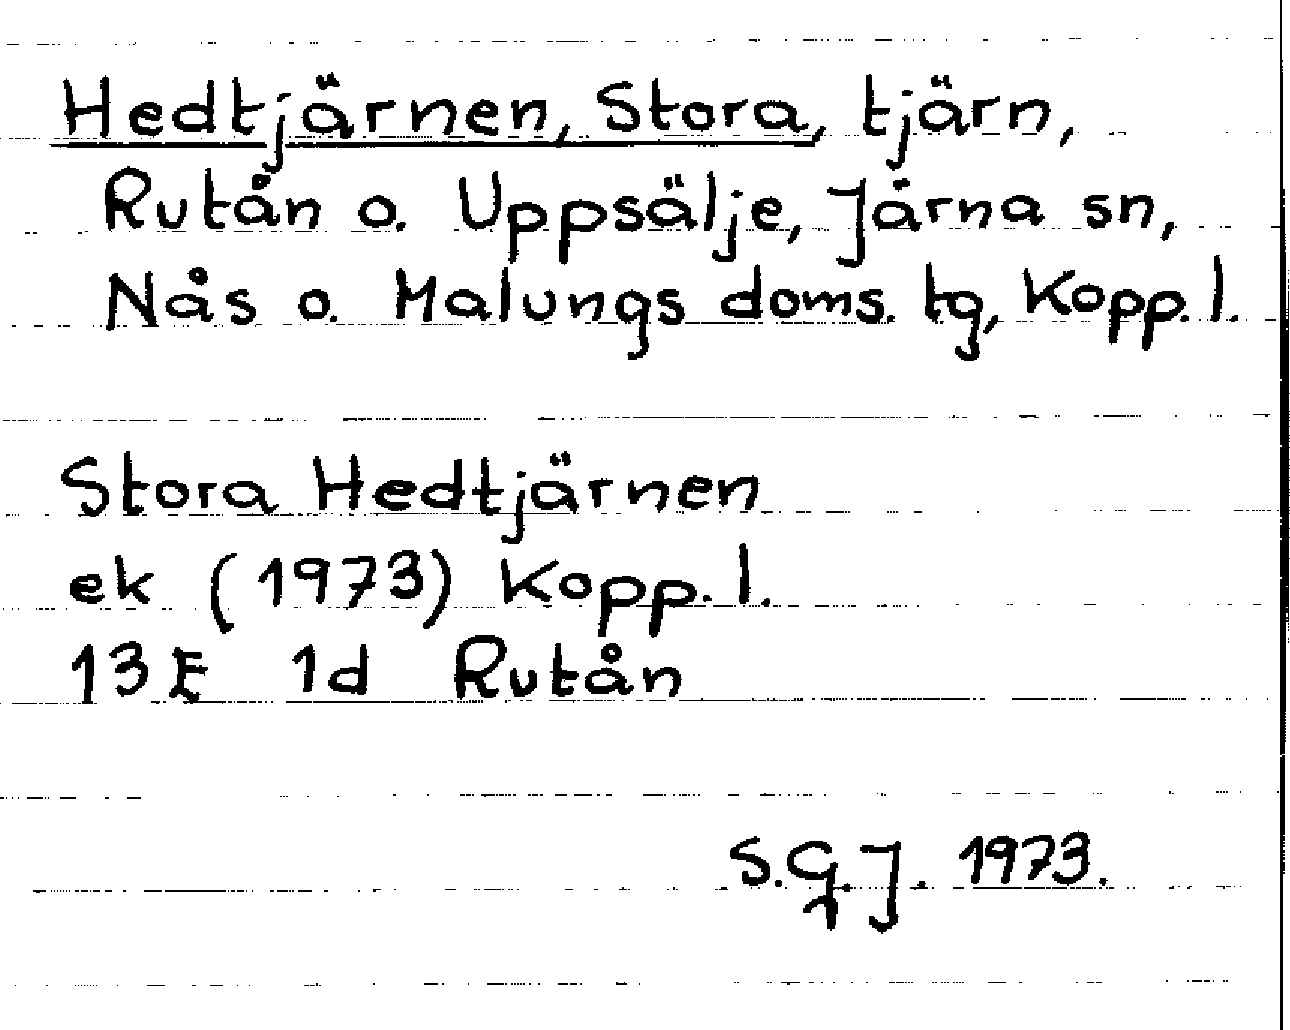 Hedtjärnen, Stora, tjärn,
Rutån o. Uppsälje, Järna sn,
Nås o. Malungs doms. tg, Kopp. l.
Stora Hedtjärnen
ek (1973) Kopp. l.
13E 1d Rutån
S.G.J. 1973.